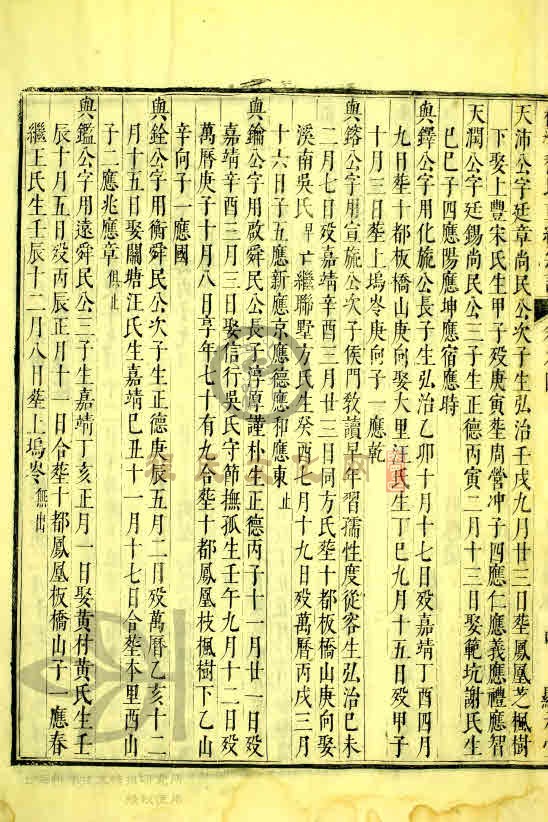 天沛公字廷章尚民公次子生弘治壬戌九月廿三日塟鳳凰芝楓樹
下娶上豐宋氏生甲子歿庚寅塟周營冲子四應仁應義應禮應智
天潤公字廷錫尚民公三子生正德丙寅二月十三日娶範坑謝氏生
巳巳子四應陽應坤應宿應時
與鐸公字用化施公長子生弘治乙卯十月十七日歿嘉靖丁酉四月
九日塟十都板橋山庚向娶大里汪氏生丁巳九月十五日歿甲子
十月三日塟上塢岺庚向子一應乾
與鎔公字用宣施公次子侯門敎讀早年習孺性度從容生弘治巳未
二月七日歿嘉靖辛酉三月廿三日同方氏塟十都板橋山庚向娶
溪南吳氏早亡繼聯墅方氏生癸酉七月十九日歿萬曆丙戌三月
十六日子五應新應京應德應和應東止
與鑰公字用啟舜民公長子淳厚謹朴生正德丙子十一月廿一日歿
嘉靖辛酉三月三日娶信行吳氏守節撫孤生壬午九月十二日歿
萬曆庚子十月八日享年七十有九合塟十都鳳凰枝楓樹下乙山
辛向子一應國
與銓公字用衡舜民公次子生正德庚辰五月二日歿萬曆乙亥十二
月十五日娶關塘汪氏生嘉靖巳丑十一月十七日合塟本里西山
子二應兆應章俱止
與鑑公字用遠舜民公三子生嘉靖丁亥正月一日娶黃村黃氏生壬
辰十月五日歿丙辰正月十一日合塟十都鳳凰板橋山子一應春
繼王氏生壬辰十二月八日塟上塢岺無出